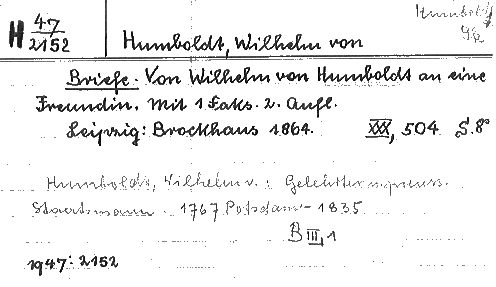 H 47/2152
Humboldt, Wilhelm von
Briefe. Von Wilhelm von Humboldt an eine
Freundin. Mit 1 Faks. 2. Aufl.
Leipzig: Brockhaus 1864. XXX, 504 S. 8°
Humboldt, Wilhelm v.: Gelehrter u. preuss.
Staatsmann. 1767 Potsdam - 1835
B III, 1
1947: 2152